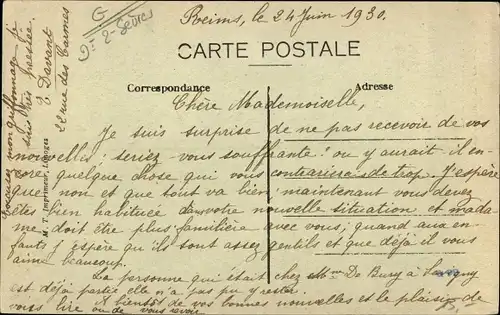 Reims, le 24 Juin 1930.
CARTE POSTALE
Correspondance
Adresse
Chère Mademoiselle,
Je suis surprise de ne pas recevoir de vos
nouvelles; seriez vous souffrante? ou y aurait il en-
core quelque chose qui vous contrarierais de trop. J'espère
que non et que tout va bien; maintenant vous devez
êtes bien habituée dans votre nouvelle situation et mada-
me doit être plus familière avec vous; quand aux en-
fants j'espère qu'ils sont assez gentils et que déjà il vous
aime beaucoup.
La personne qui était chez Mme De Bary à
est déjà partie elle n'a pas pu y rester.
A bientôt de vos bonnes nouvelles et le plaisir de
vous lire ou de vous revoir.
Excusez mon griffonnage je
suis très pressée
E Davant
22 rue des Carmes
Imprimeur, Limoges
G
Dt 2-Sèvres